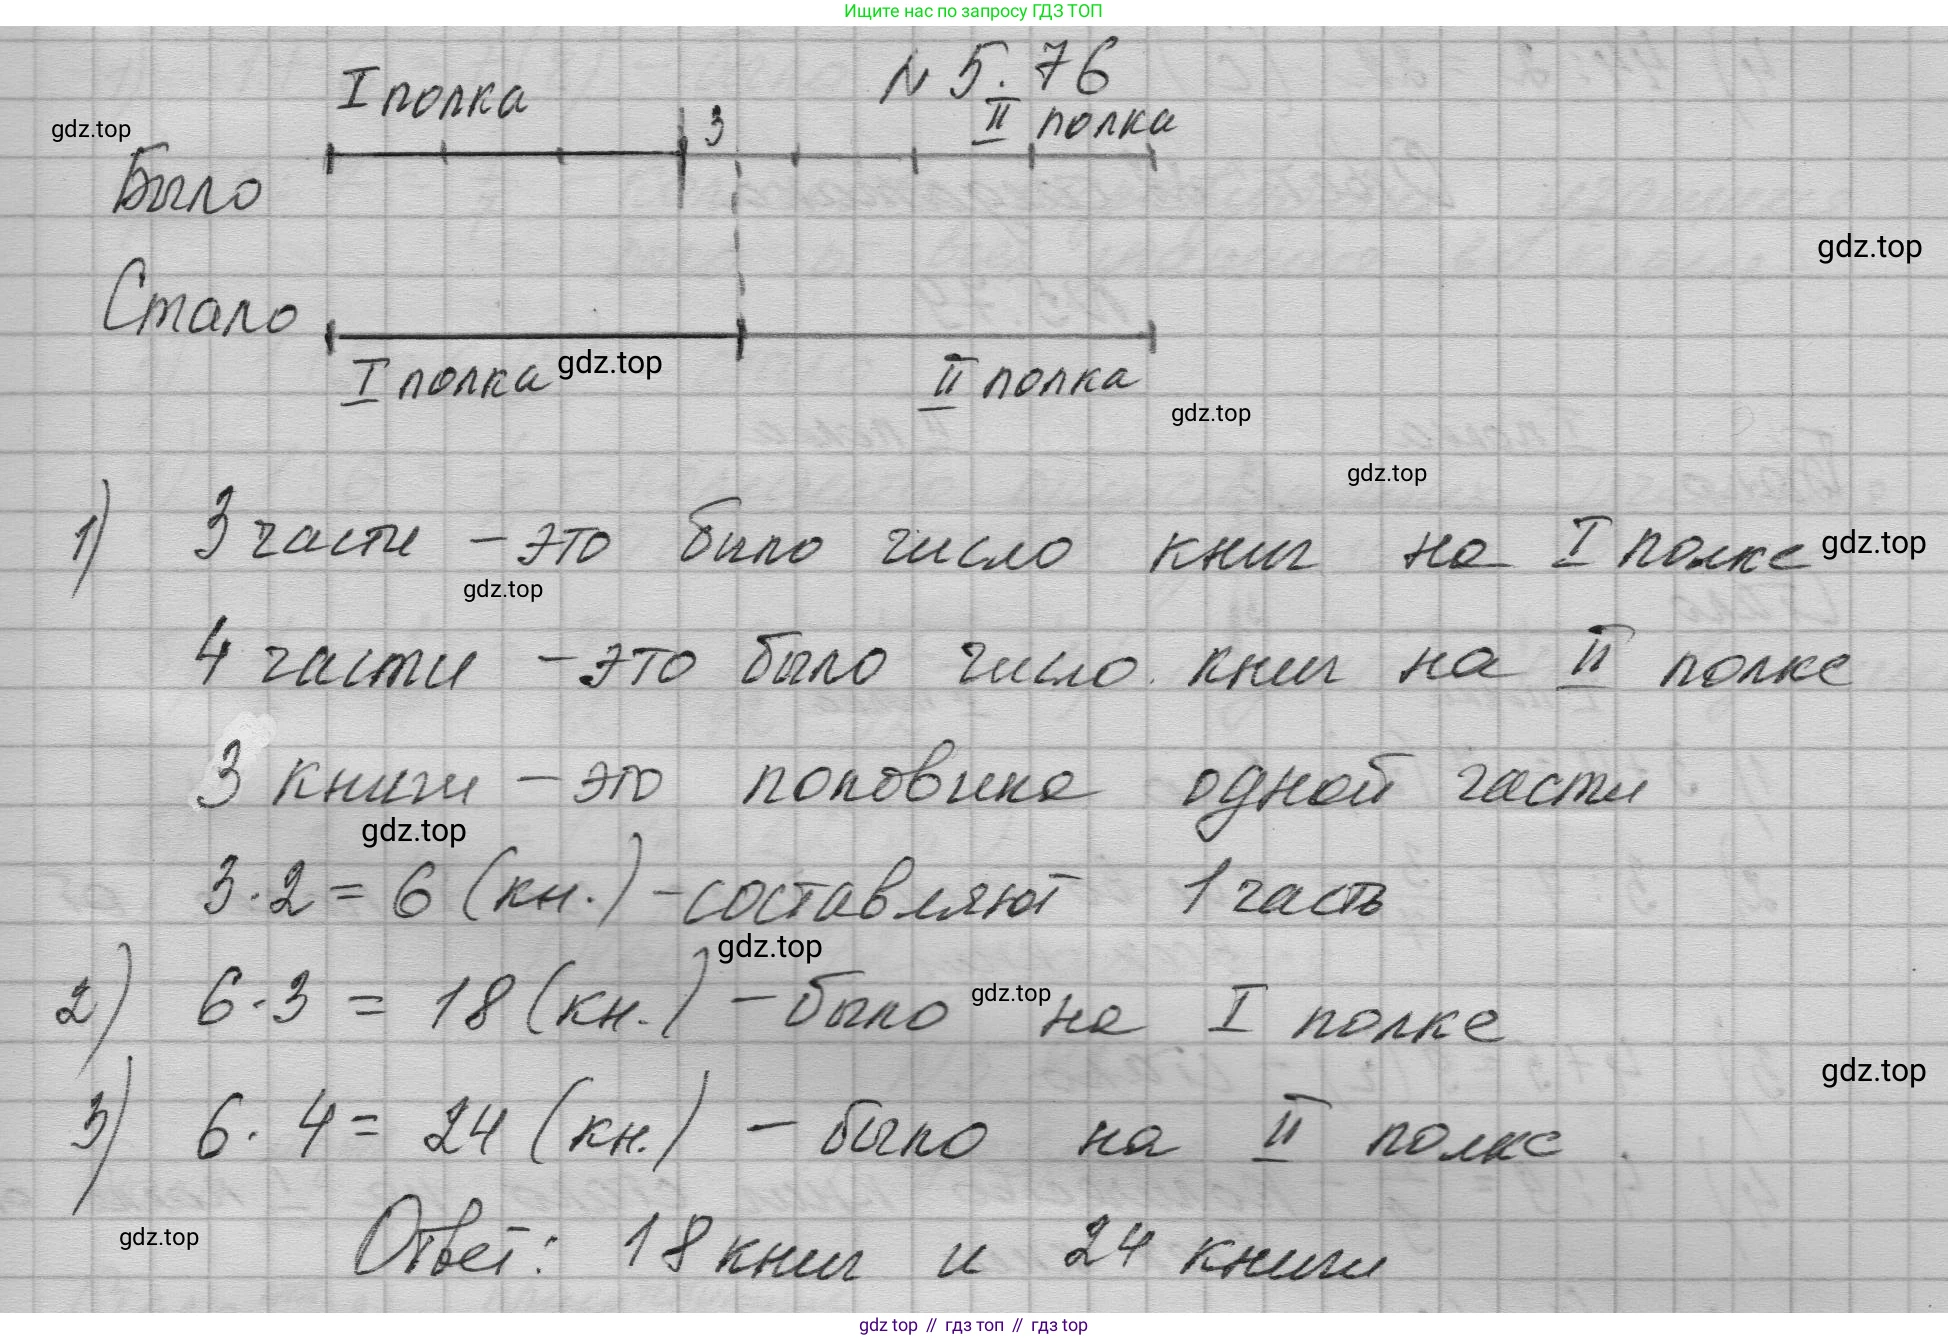 Ищите нас по запросу ГДЗ ТОП
N 5.76
I полка
3
II полка
gdz.top
Было
gdz.top
Стало
I полка
gdz.top
II полка
gdz.top
gdz.top
1) 3 части - это было число книг на I полке
gdz.top
gdz.top
4 части - это было число книг на II полке
3 книги - это половина одной части
gdz.top
3·2 = 6 (кн.) - составляют 1 часть
gdz.top
2) 6·3 = 18 (кн.) - было на I полке
gdz.top
gdz.top
3) 6·4 = 24 (кн.) - было на II полке
gdz.top
Ответ: 18 книг и 24 книги
gdz top // гдз топ // гдз top